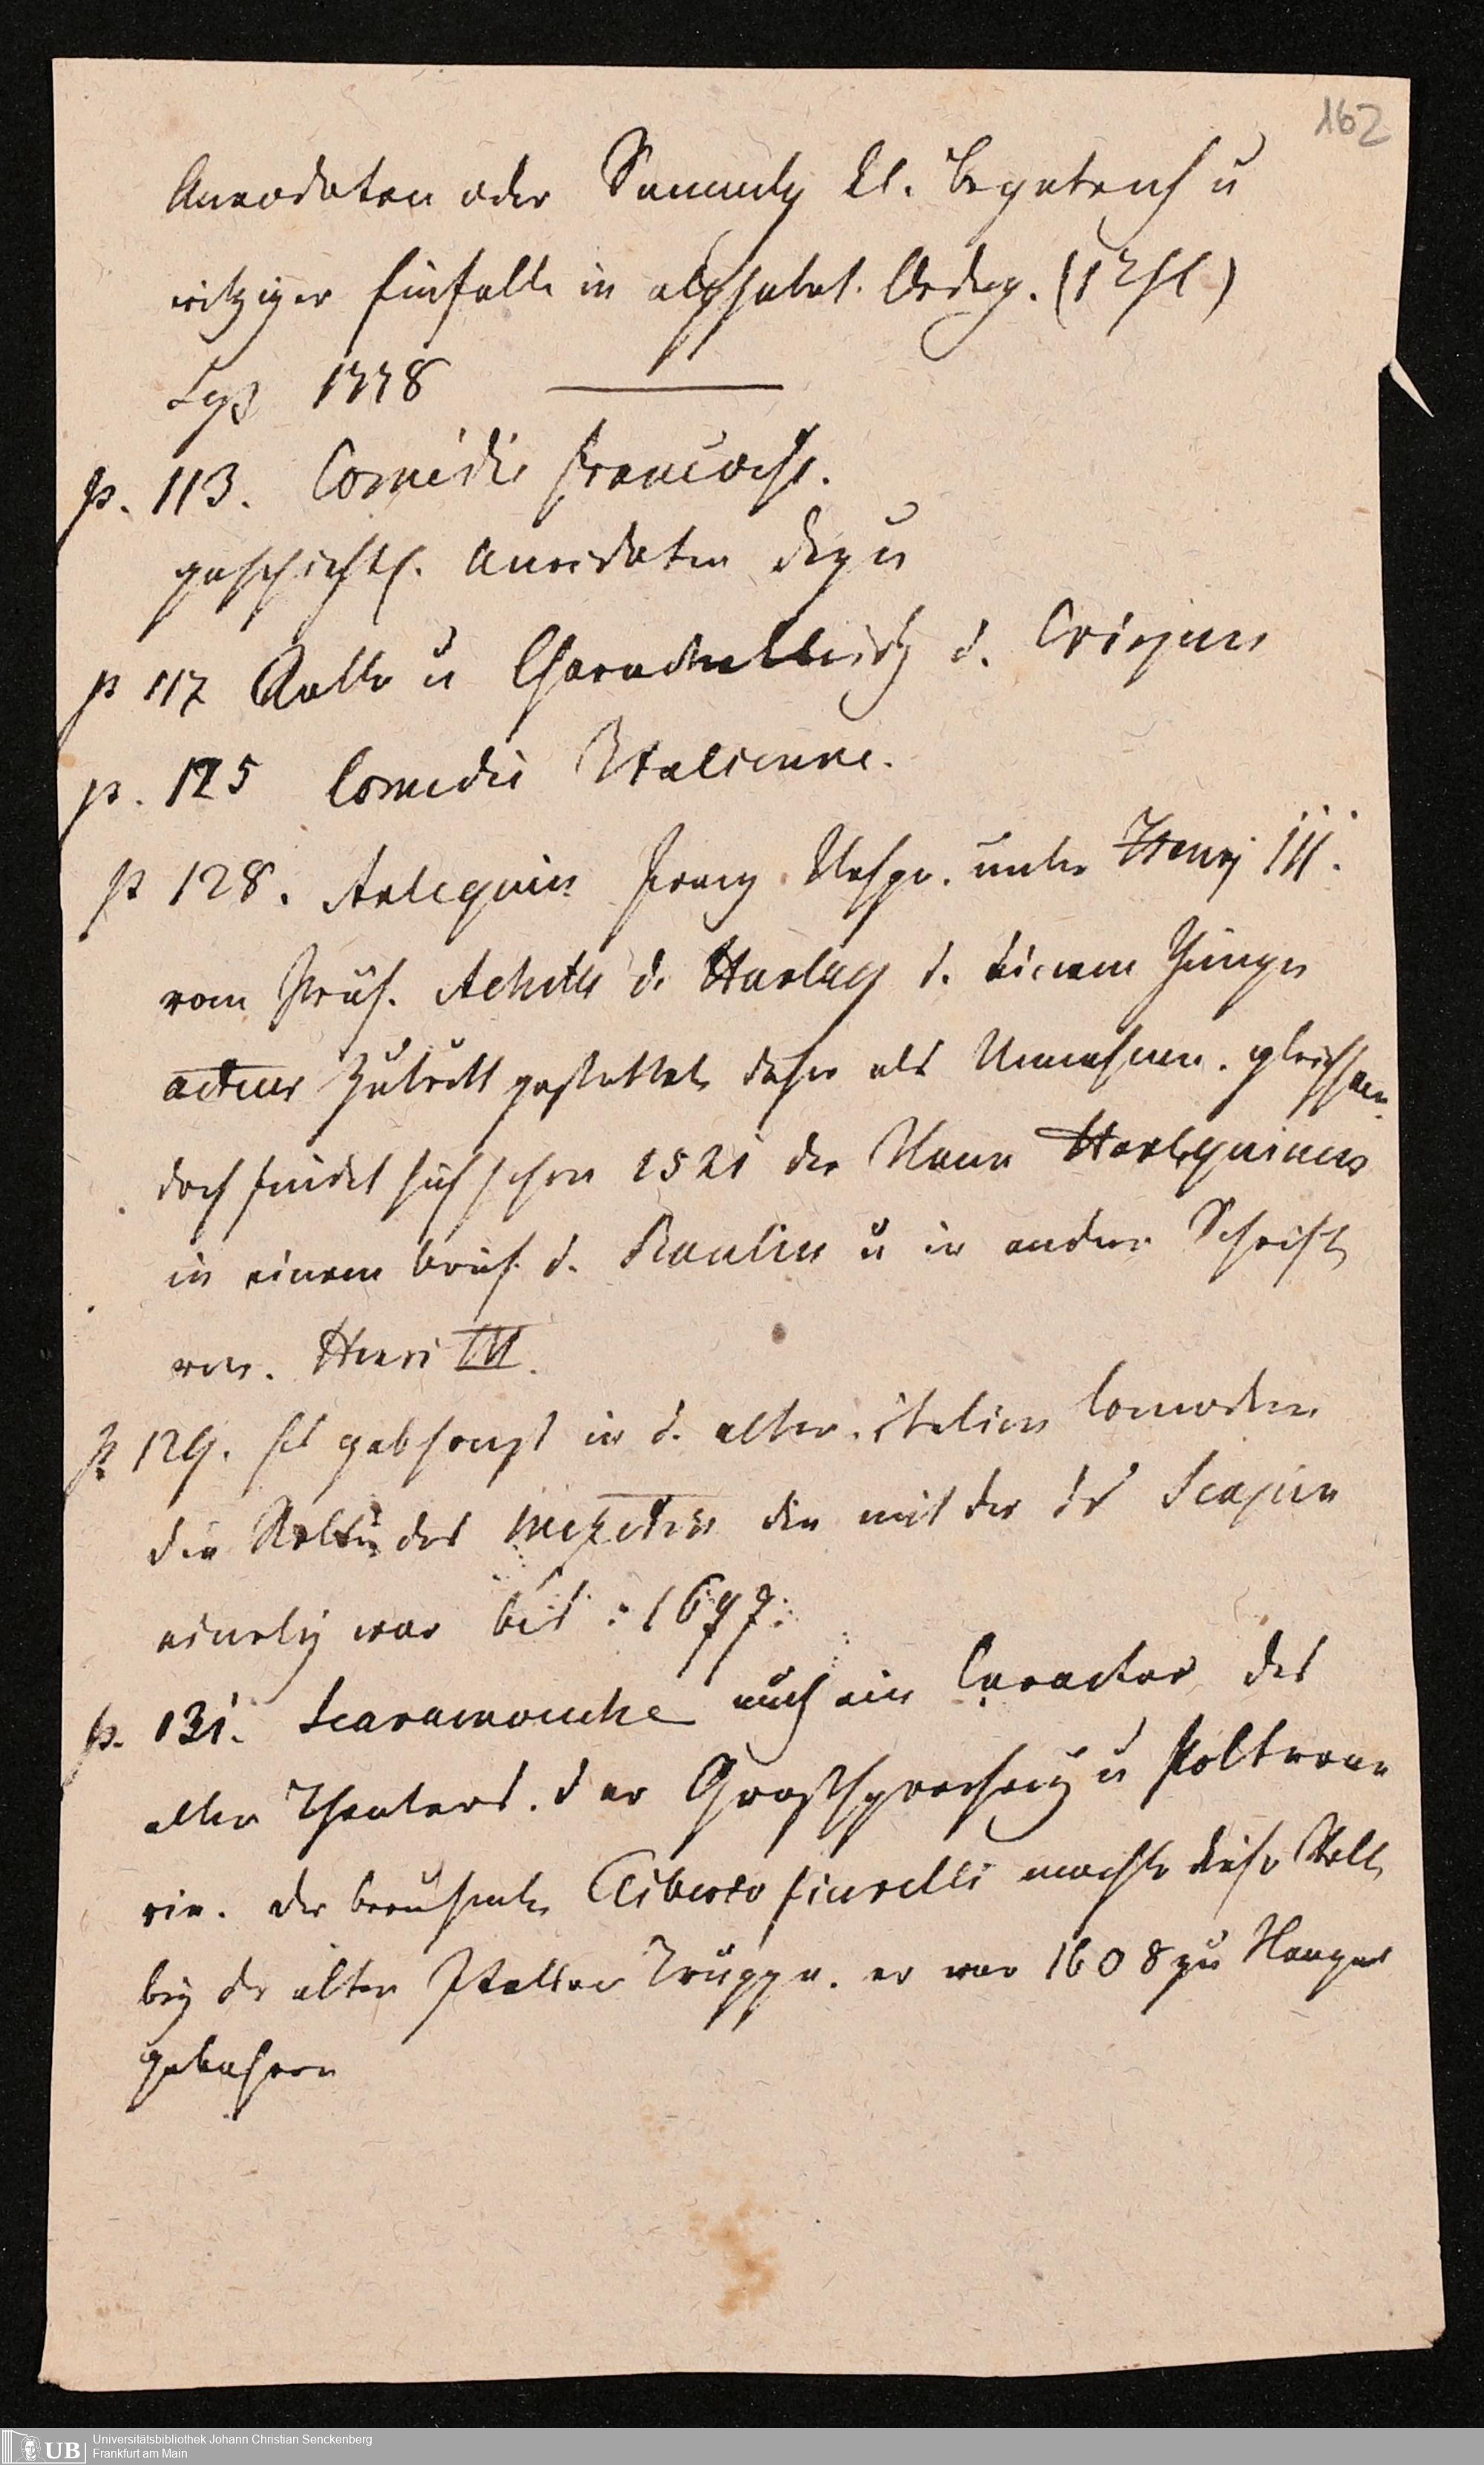 162
Anecdoten oder Sammlg kl. Begebenh u
witziger Einfälle in alphabet. Ordng. (1 Thl)
Lpz 1778
p. 113. Comedie francoise.
geschichtl. Anecdoten dazu
p 117 Rolle u Charackterkleidg d. Crispins
p. 125 Comedie Italienne.
p 128. Arlequin franz Urspr. unter Henry III.
vom Präs. Achille de Harlay d. einem jungen
acteur Zutritt gestattete daher als
doch findet sich schon 1521 der Name Harlequinus
in einem Brief d. Raulin u in andern Schrift
vor. Henri III.
p 129. Es gab sonst in d. alten italien Comoedien
die Rolle des Mezetin die mit der des Scapin
einerley war bis 1697.
p. 131. Scaramouche auch ein Caracter des
alten Theaters. der Grossprecherey u Poltrone
rie. der berühmte Tiberio fiurelli machte diese Rolle
bey der alten Italien Truppe. er war 1608 zu Neapel
gebohren
UB
Universitätsbibliothek Johann Christian Senckenberg
Frankfurt am Main